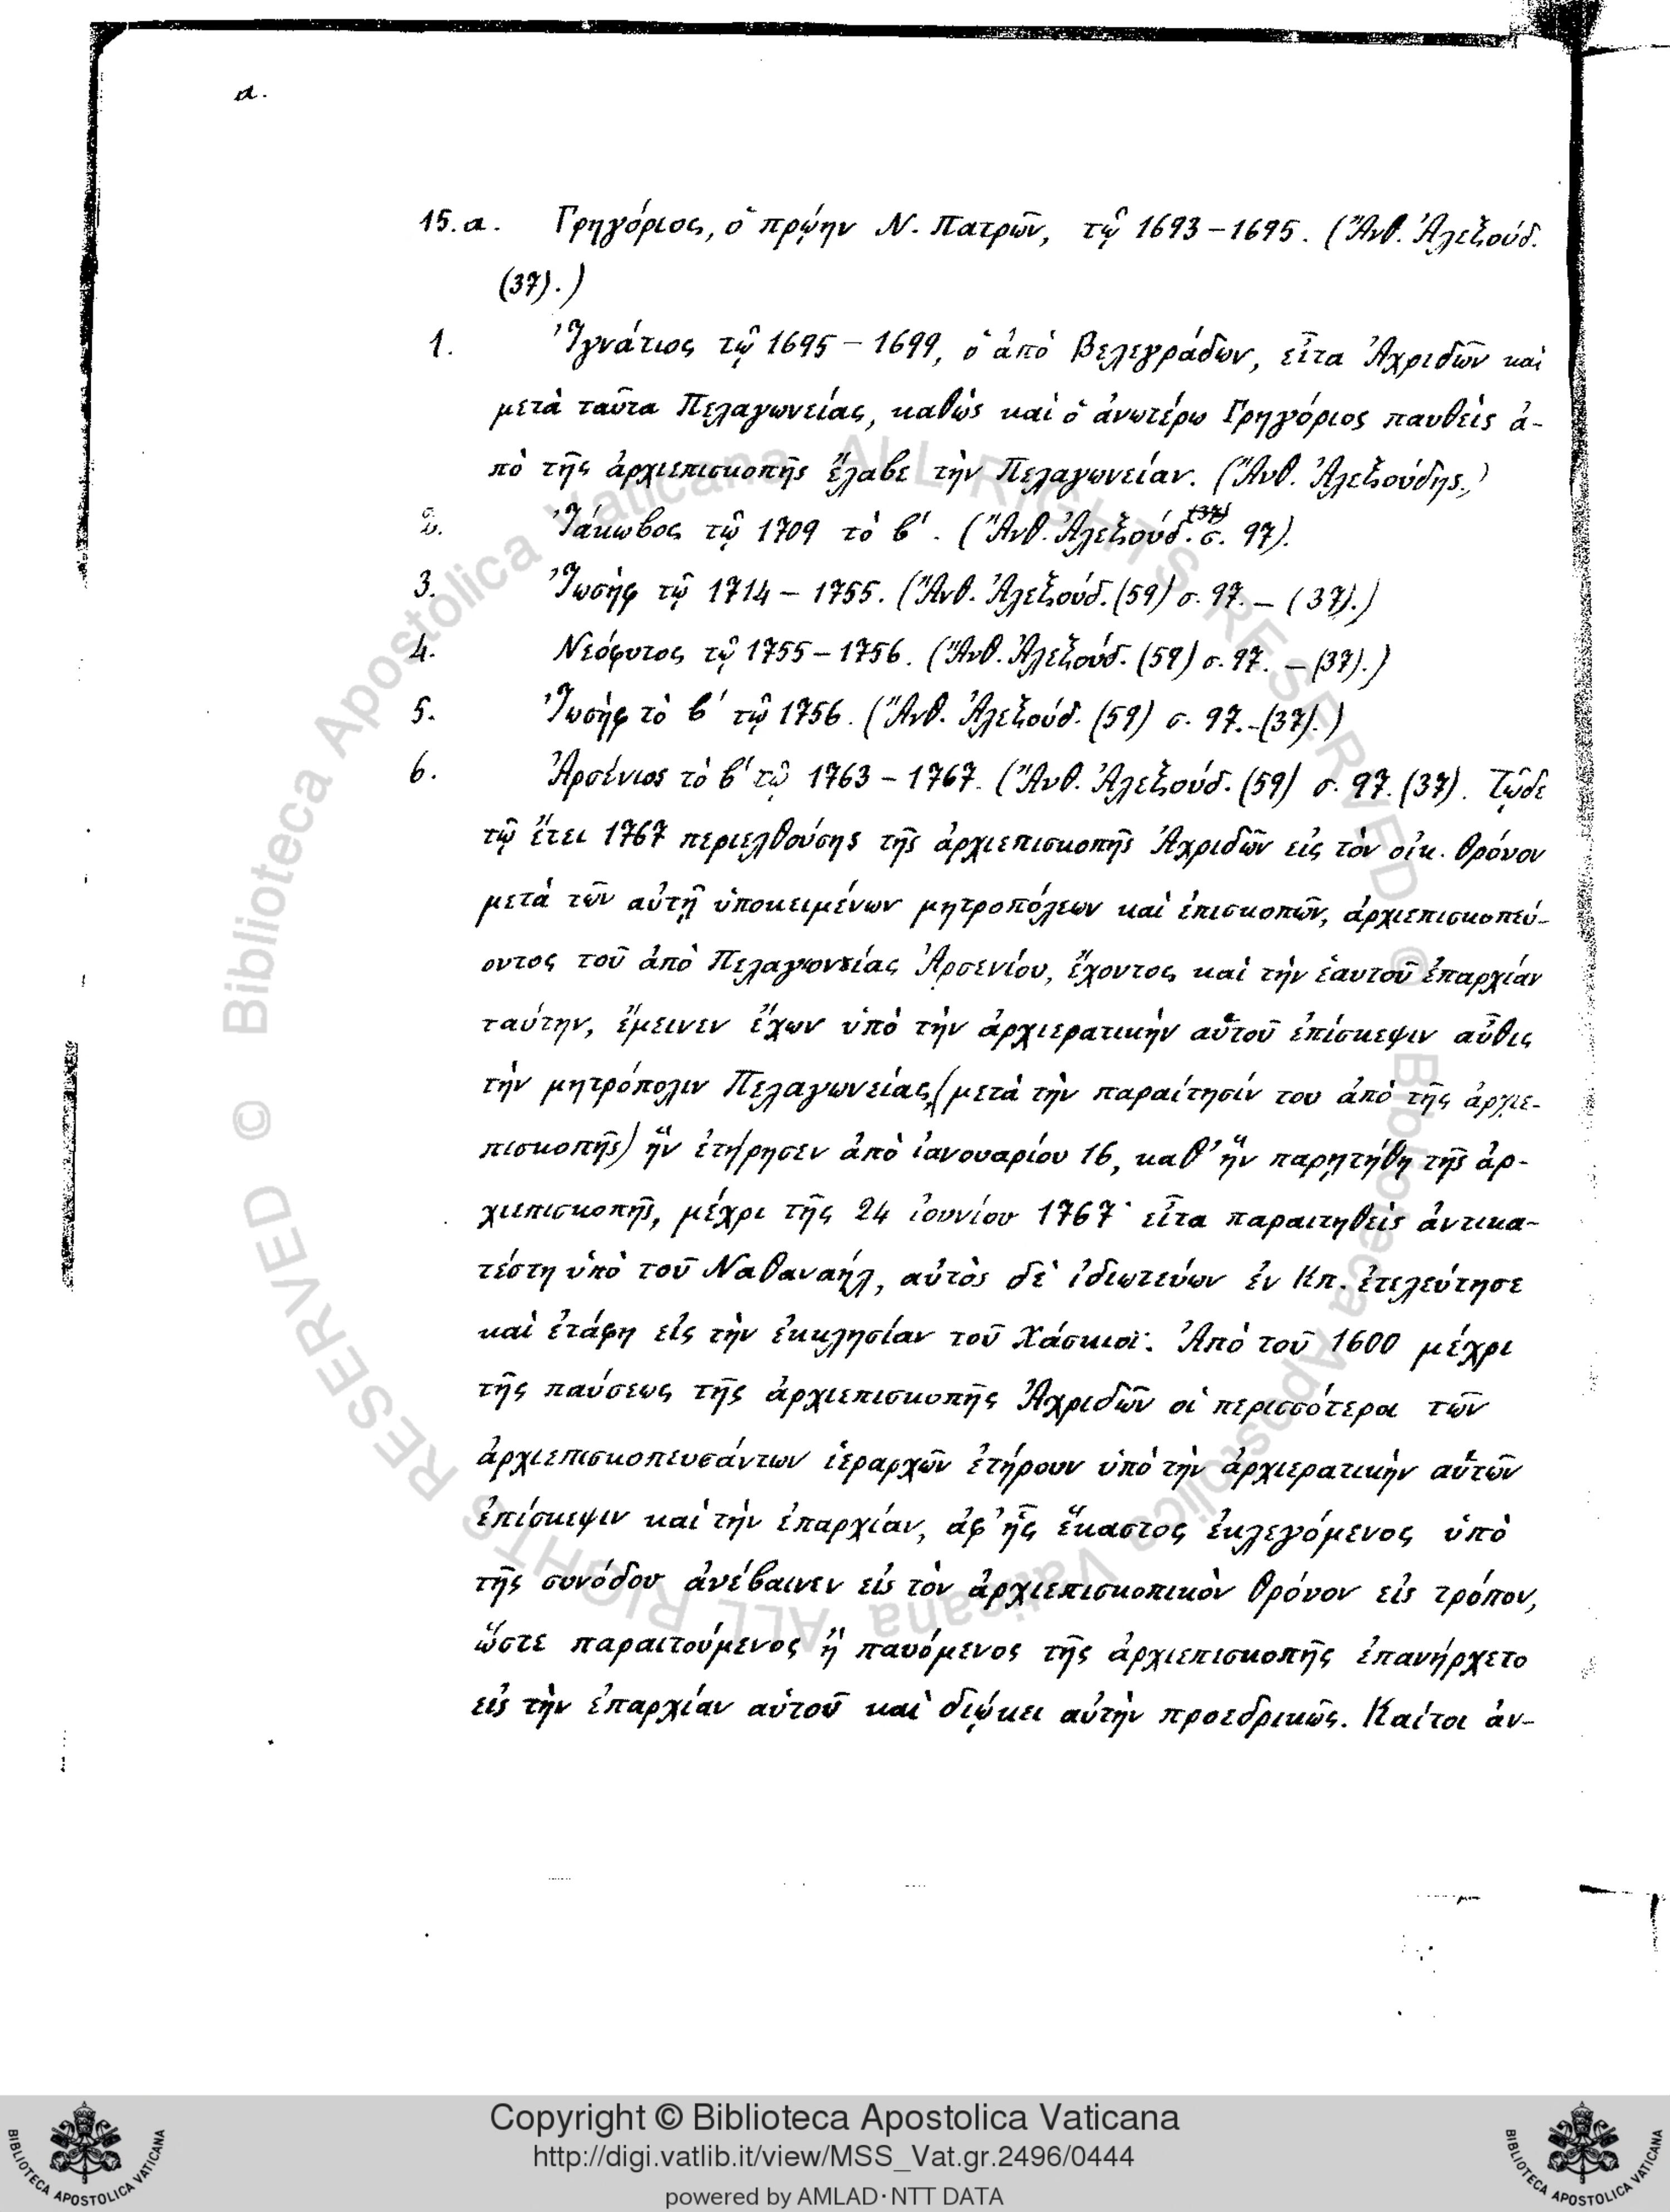 α.
15.α. Γρηγόριος, ὁ πρῴην Ν. Πατρῶν, τῷ 1693-1695. (Ἄνθ. Ἀλεξούδ.
(37).)
1. Ἰγνάτιος τῷ 1695-1699, ὁ ἀπὸ Βελεγράδων, εἶτα Ἀχριδῶν καὶ
μετὰ ταῦτα Πελαγωνείας, καθὼς καὶ ὁ ἀνωτέρω Γρηγόριος παυθεὶς ἀ-
πὸ τῆς ἀρχιεπισκοπῆς ἔλαβε τὴν Πελαγωνείαν. (Ἄνθ. Ἀλεξούδης.)
2. Ἰάκωβος τῷ 1709 τὸ β'. (Ἄνθ. Ἀλεξούδ. (37) σ. 97).
3. Ἰωσὴφ τῷ 1714-1755. (Ἄνθ. Ἀλεξούδ. (59) σ. 97. - (37).)
4. Νεόφυτος τῷ 1755-1756. (Ἄνθ. Ἀλεξούδ. (59) σ. 97. - (37).)
5. Ἰωσὴφ τὸ β' τῷ 1756. (Ἄνθ. Ἀλεξούδ. (59) σ. 97.-(37).)
6. Ἀρσένιος τὸ β' τῷ 1763-1767. (Ἄνθ. Ἀλεξούδ. (59) σ. 97. (37). Τῷδε
τῷ ἔτει 1767 περιελθούσης τῆς ἀρχιεπισκοπῆς Ἀχριδῶν εἰς τὸν οἰκ. θρόνον
μετὰ τῶν αὐτῇ ὑποκειμένων μητροπόλεων καὶ ἐπισκοπῶν, ἀρχιεπισκοπεύ-
οντος τοῦ ἀπὸ Πελαγωνείας Ἀρσενίου, ἔχοντος καὶ τὴν ἑαυτοῦ ἐπαρχίαν
ταύτην, ἔμεινεν ἔχων ὑπὸ τὴν ἀρχιερατικὴν αὑτοῦ ἐπίσκεψιν αὖθις
τὴν μητρόπολιν Πελαγωνείας, (μετὰ τὴν παραίτησίν του ἀπὸ τῆς ἀρχιε-
πισκοπῆς) ἣν ἐτήρησεν ἀπὸ ἰανουαρίου 16, καθ' ἣν παρῃτήθη τῆς ἀρ-
χιεπισκοπῆς, μέχρι τῆς 24 ἰουνίου 1767· εἶτα παραιτηθεὶς ἀντικα-
τέστη ὑπὸ τοῦ Ναθαναήλ, αὐτὸς δὲ ἰδιωτεύων ἐν Κπ. ἐτελεύτησε
καὶ ἐτάφη εἰς τὴν ἐκκλησίαν τοῦ Χάσκιοϊ. Ἀπὸ τοῦ 1600 μέχρι
τῆς παύσεως τῆς ἀρχιεπισκοπῆς Ἀχριδῶν οἱ περισσότεροι τῶν
ἀρχιεπισκοπευσάντων ἱεραρχῶν ἐτήρουν ὑπὸ τὴν ἀρχιερατικὴν αὑτῶν
ἐπίσκεψιν καὶ τὴν ἐπαρχίαν, ἀφ' ἧς ἕκαστος ἐκλεγόμενος ὑπὸ
τῆς συνόδου ἀνέβαινεν εἰς τὸν ἀρχιεπισκοπικὸν θρόνον εἰς τρόπον,
ὥστε παραιτούμενος ἢ παυόμενος τῆς ἀρχιεπισκοπῆς ἐπανήρχετο
εἰς τὴν ἐπαρχίαν αὑτοῦ καὶ διῴκει αὐτὴν προεδρικῶς. Καίτοι ἀν-
© Biblioteca Apostolica Vaticana ALL RIGHTS RESERVED © Biblioteca Apostolica Vaticana ALL RIGHTS RESERVED
Copyright © Biblioteca Apostolica Vaticana
http://digi.vatlib.it/view/MSS_Vat.gr.2496/0444
powered by AMLAD·NTT DATA
BIBLIOTECA APOSTOLICA VATICANA
BIBLIOTECA APOSTOLICA VATICANA